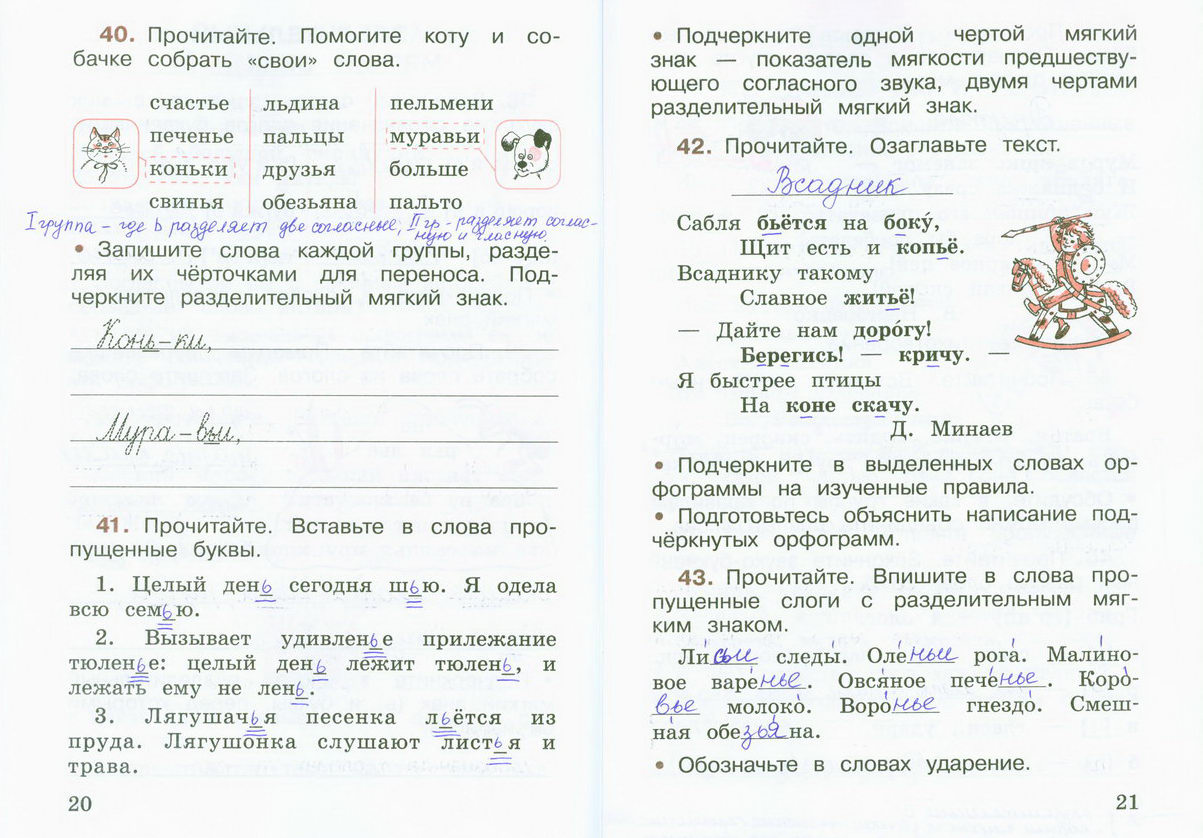 40. Прочитайте. Помогите коту и со-
бачке собрать «свои» слова.
счастье льдина пельмени
печенье пальцы муравьи
коньки друзья больше
свинья обезьяна пальто
I группа – где ь разделяет две согласные; II гр. - разделяет соглас-
ную и гласную.
• Запишите слова каждой группы, разде-
ляя их чёрточками для переноса. Под-
черкните разделительный мягкий знак.
Конь-ки,
Мура-вьи,
41. Прочитайте. Вставьте в слова про-
пущенные буквы.
1. Целый день сегодня шью. Я одела
всю семью.
2. Вызывает удивленье прилежание
тюленье: целый день лежит тюлень, и
лежать ему не лень.
3. Лягушачья песенка льётся из
пруда. Лягушонка слушают листья и
трава.
20
• Подчеркните одной чертой мягкий
знак — показатель мягкости предшеству-
ющего согласного звука, двумя чертами
разделительный мягкий знак.
42. Прочитайте. Озаглавьте текст.
Всадник
Сабля бьётся на боку́,
Щит есть и копьё.
Всаднику такому
Славное житьё!
— Дайте нам доро́гу!
Берегись! — кричу. —
Я быстрее птицы
На коне скачу.
Д. Минаев
• Подчеркните в выделенных словах ор-
фограммы на изученные правила.
• Подготовьтесь объяснить написание под-
чёркнутых орфограмм.
43. Прочитайте. Впишите в слова про-
пущенные слоги с разделительным мяг-
ким знаком.
Ли́сьи следы́. Оле́ньи рога́. Мали́но-
вое варе́нье. Овся́ное пече́нье. Коро́-
вье молоко́. Воро́нье гнездо́. Смеш-
на́я обезья́на.
• Обозначьте в словах ударение.
21